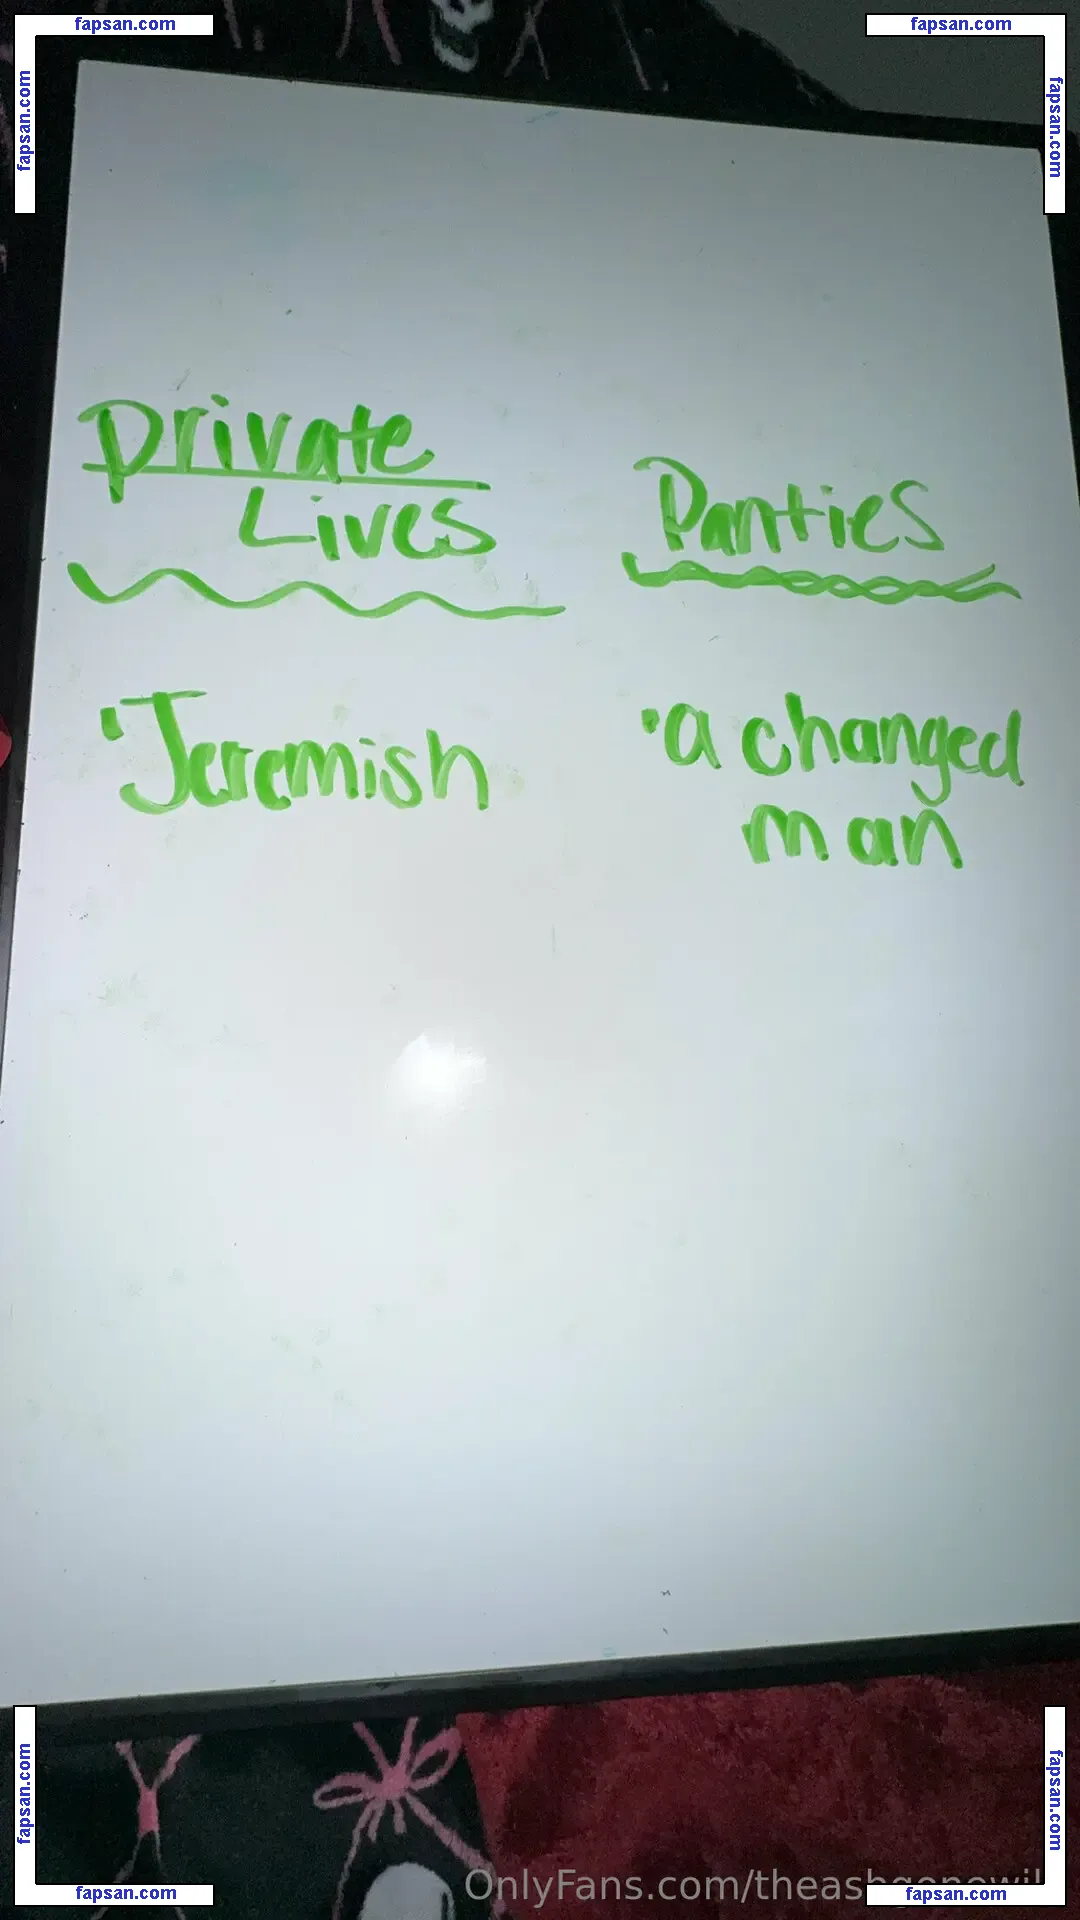 fapsan.com
fapsan.com
fapsan.com
fapsan.com
Private
Lives
Panties
Jeremish
a changed
man
fapsan.com
fapsan.com
OnlyFans.com/theashgonewil
fapsan.com
fapsan.com